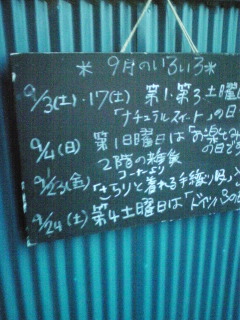 * 9月のいろいろ *
9/3(土)・17(土) 第1・第3土曜日
「ナチュラルスイート」の日
9/4(日) 第1日曜日は「お楽しみ
の日です
2階の
コーナーより
9/23(金) 「さらりと着れる手織り
9/24(土) 第4土曜日は「ドイツパンの日